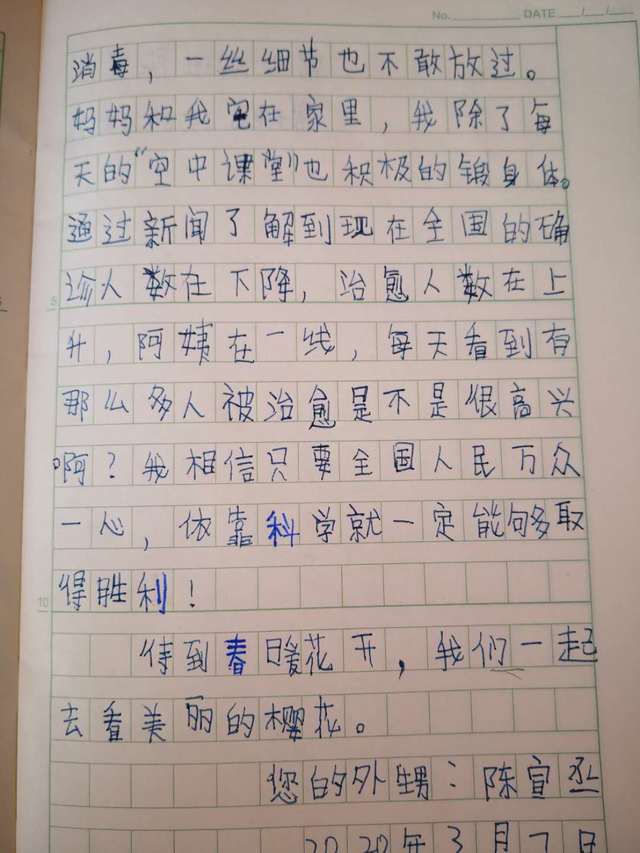 No. DATE / /
消毒，一丝细节也不敢放过。
妈妈和我宅在家里，我除了每
天的“空中课堂”也积极的锻身体。
通过新闻了解到现在全国的确
诊人数在下降，治愈人数在上
5
升，阿姨在一线，每天看到有
那么多人被治愈是不是很高兴
啊？我相信只要全国人民万众
一心，依靠科学就一定能够取
得胜利！
10
待到春日暖花开，我们一起
去看美丽的樱花。
您的外甥：陈宣丞
2020年3月7日